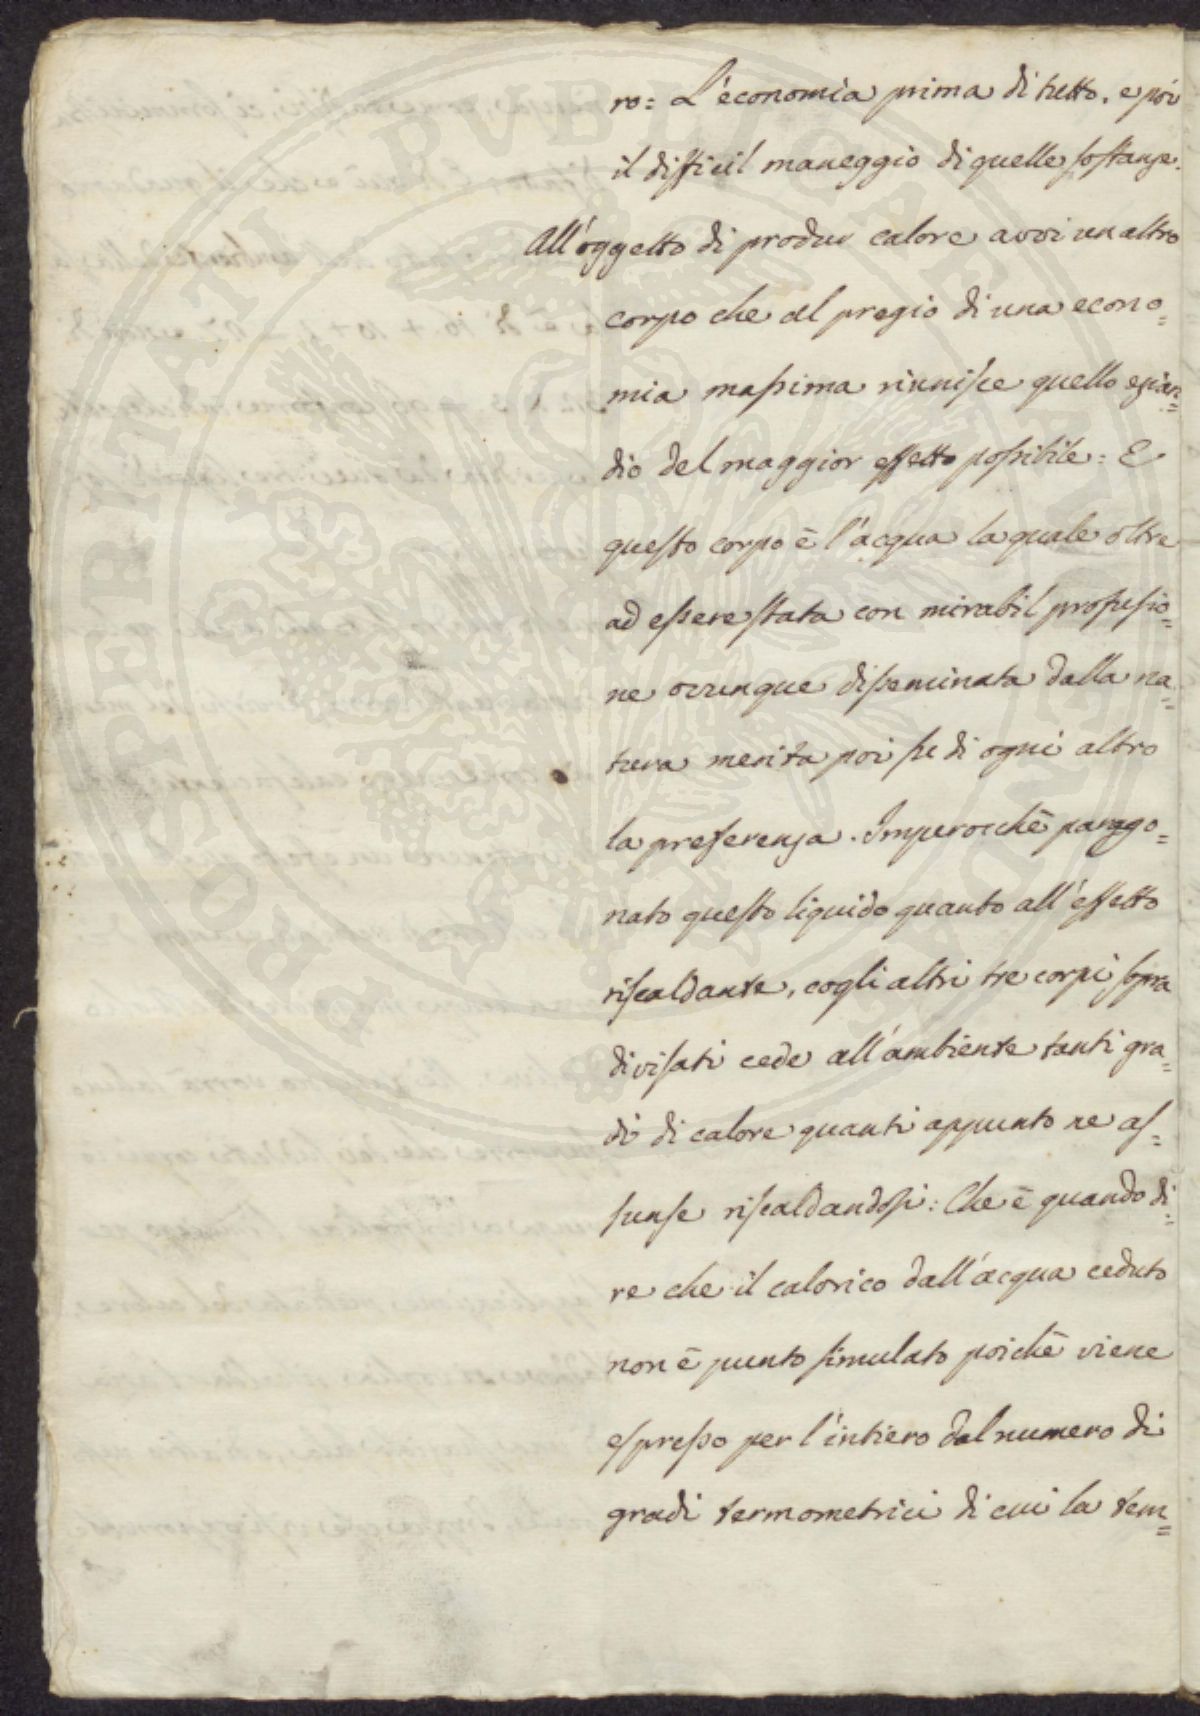 ro= L'economia prima di tutto, e poi
il difficil maneggio di quelle sostanze.
All'oggetto di produr calore avvi un altro
corpo che al pregio di una econo=
mia massima riunisce quello ezian=
dio del maggior effetto possibile: E
questo corpo è l'acqua la quale oltre
ad essere stata con mirabil profusio=
ne ovunque disseminata dalla na=
tura merita poi su di ogni altro
la preferenza. Imperocchè parago=
nato questo liquido quanto all'effetto
riscaldante, cogli altri tre corpi sopra
divisati cede all'ambiente tanti gra=
di di calore quanti appunto ne as=
sunse riscaldandosi: Che è quando di=
re che il calorico dall'acqua ceduto
non è punto simulato poichè viene
espresso per l'intiero dal numero di
gradi termometrici di cui la tem=
PROSPERITATI PVBLICAE